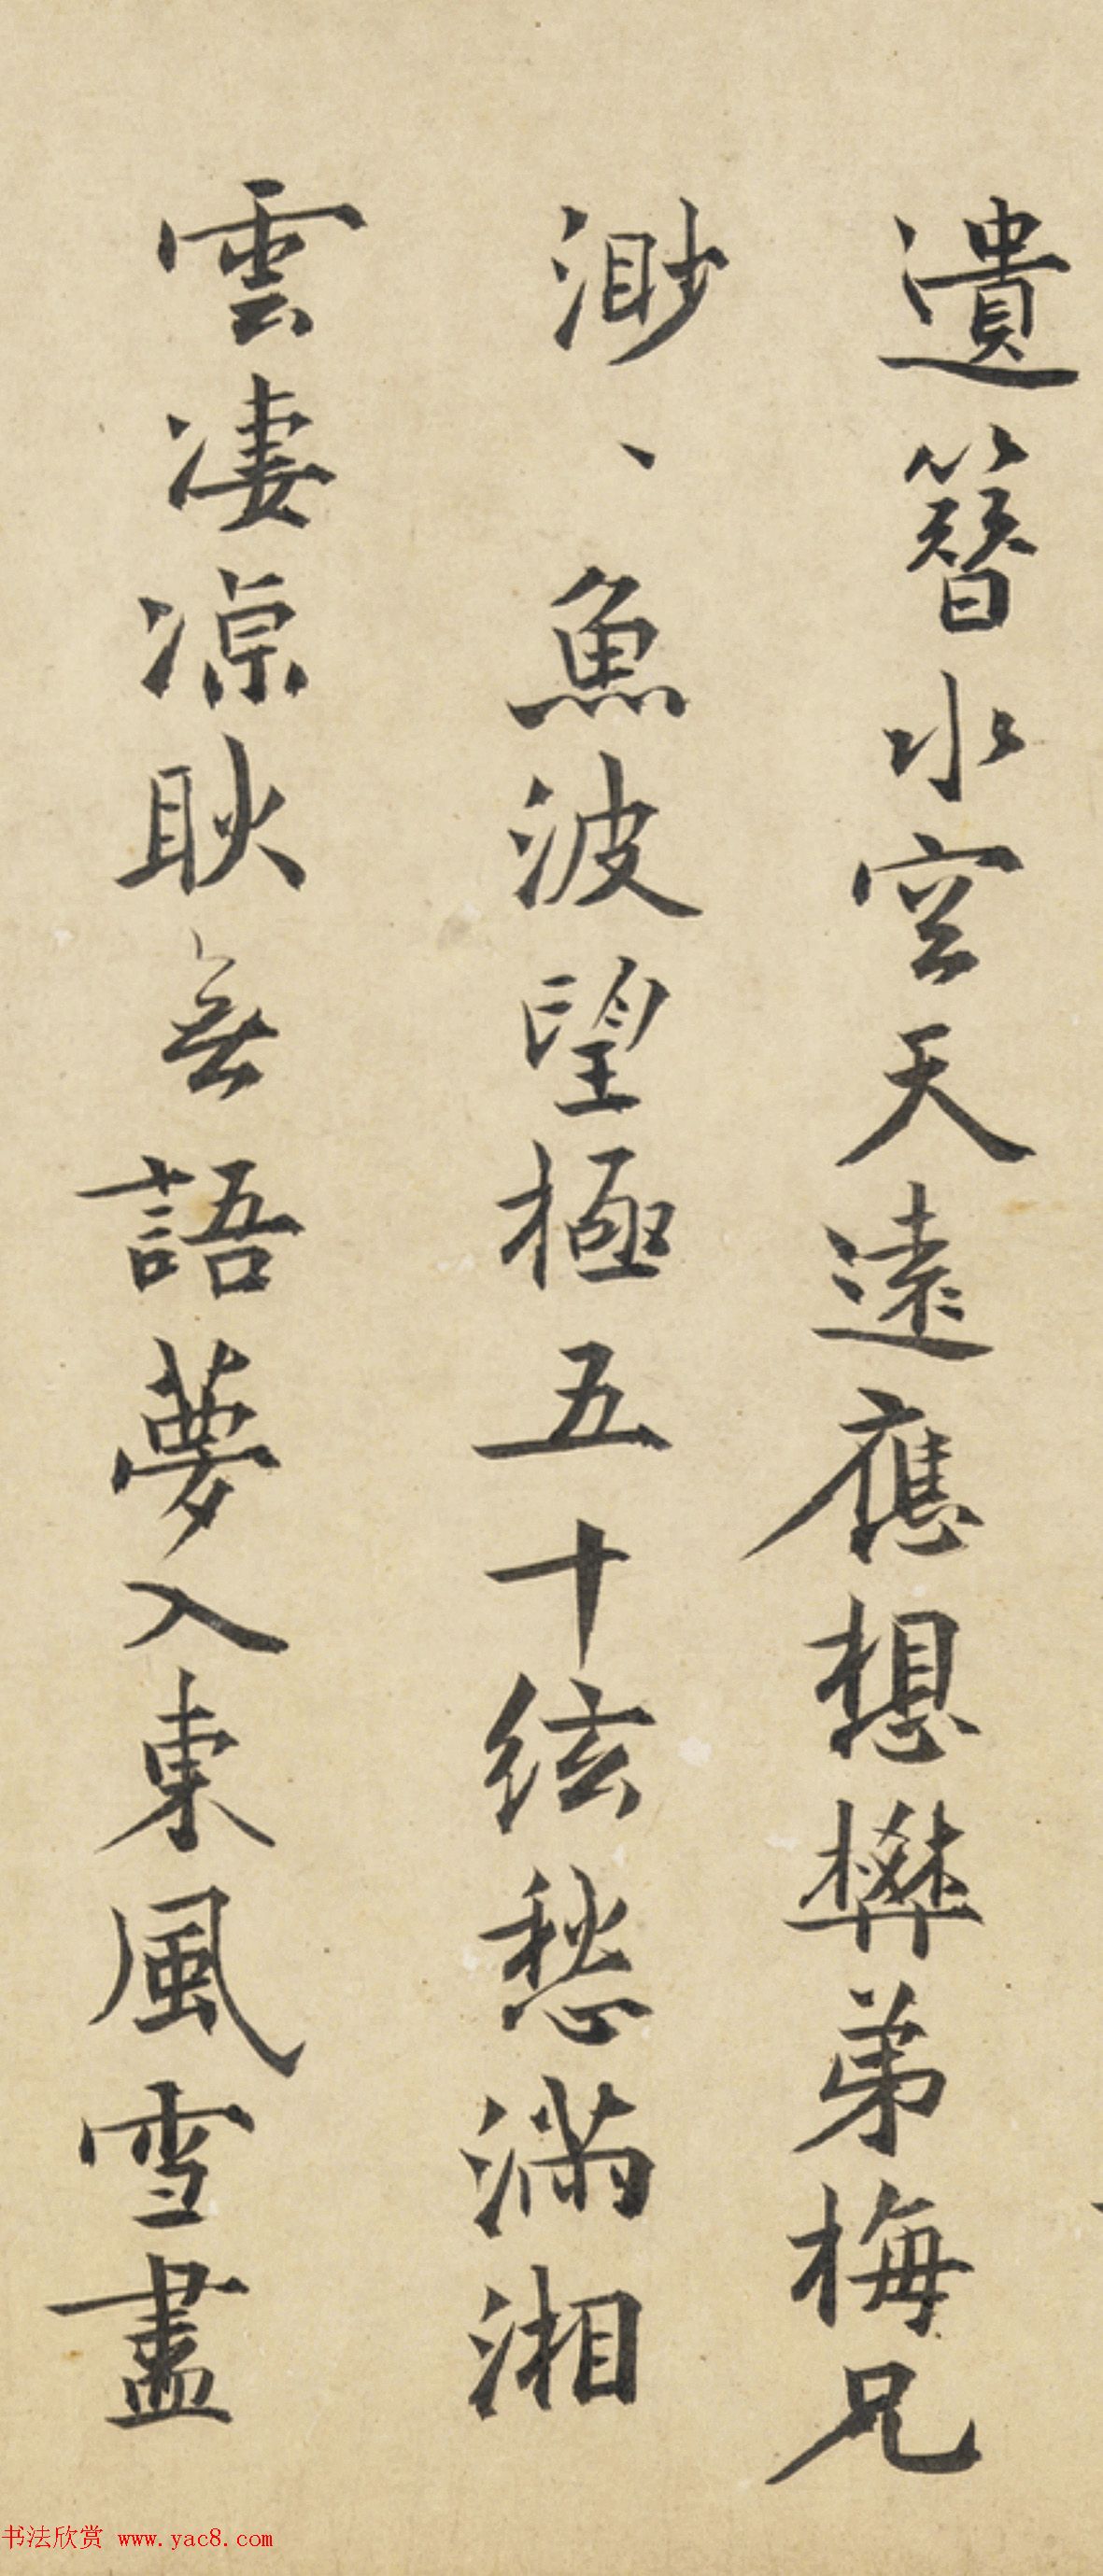 遺簪水空天遠應想礬弟梅兄
渺、魚波望極五十絃愁滿湘
雲淒凉耿無語夢入東風雪盡
书法欣赏 www.yac8.com